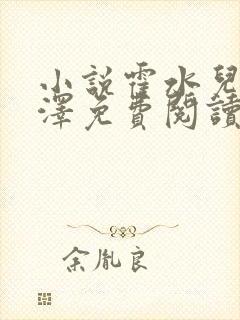 小說霍水兒
澤免費閱讀
余胤良